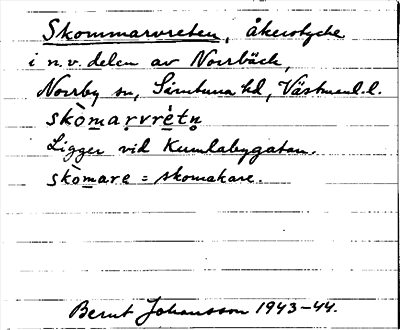 Skommarvreten, åkerstycke
i n.v. delen av Norrbäck,
Norrby sn, Simtuna hd, Västmanl. l.
skòmarvrètn̥
Ligger vid Kumlabygatan.
skòmare = skomakare.
Bernt Johansson 1943-44.